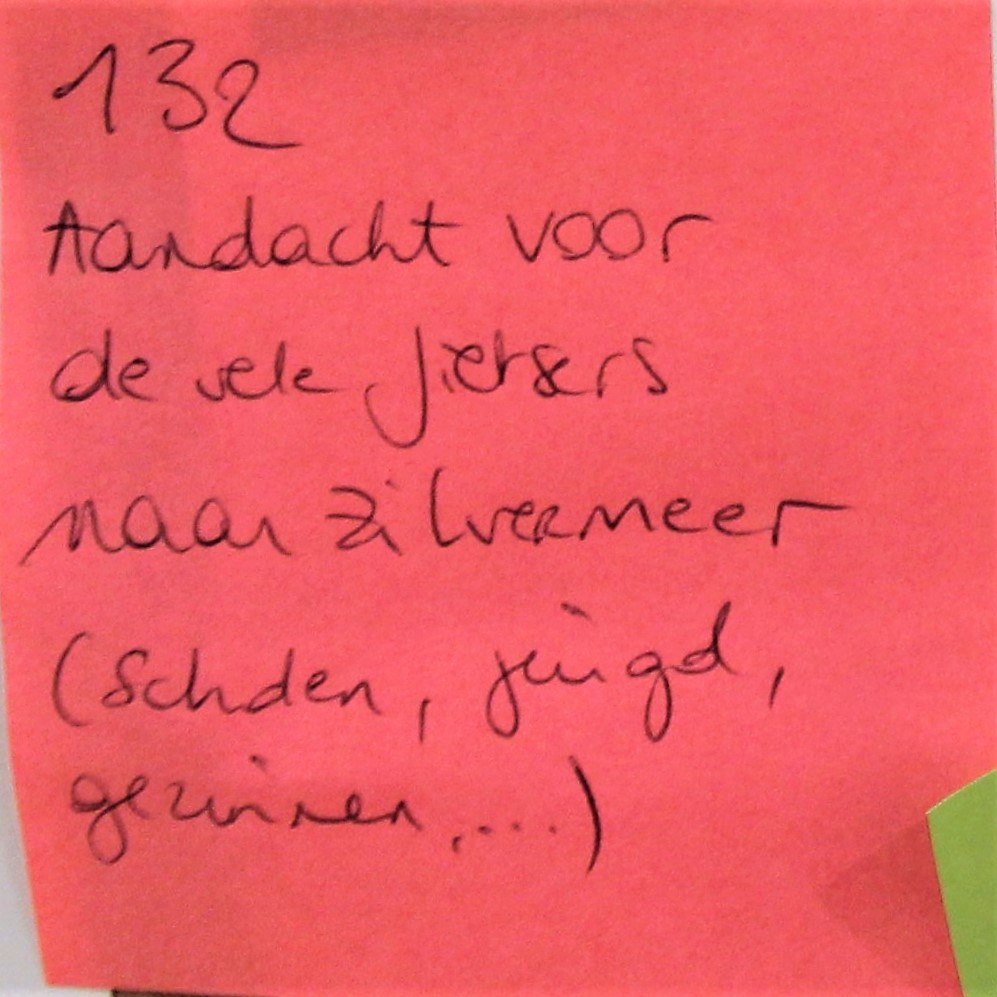 132
Aandacht voor
de vele fietsers
naar Zilvermeer
(scholen, jeugd,
gezinnen,....)